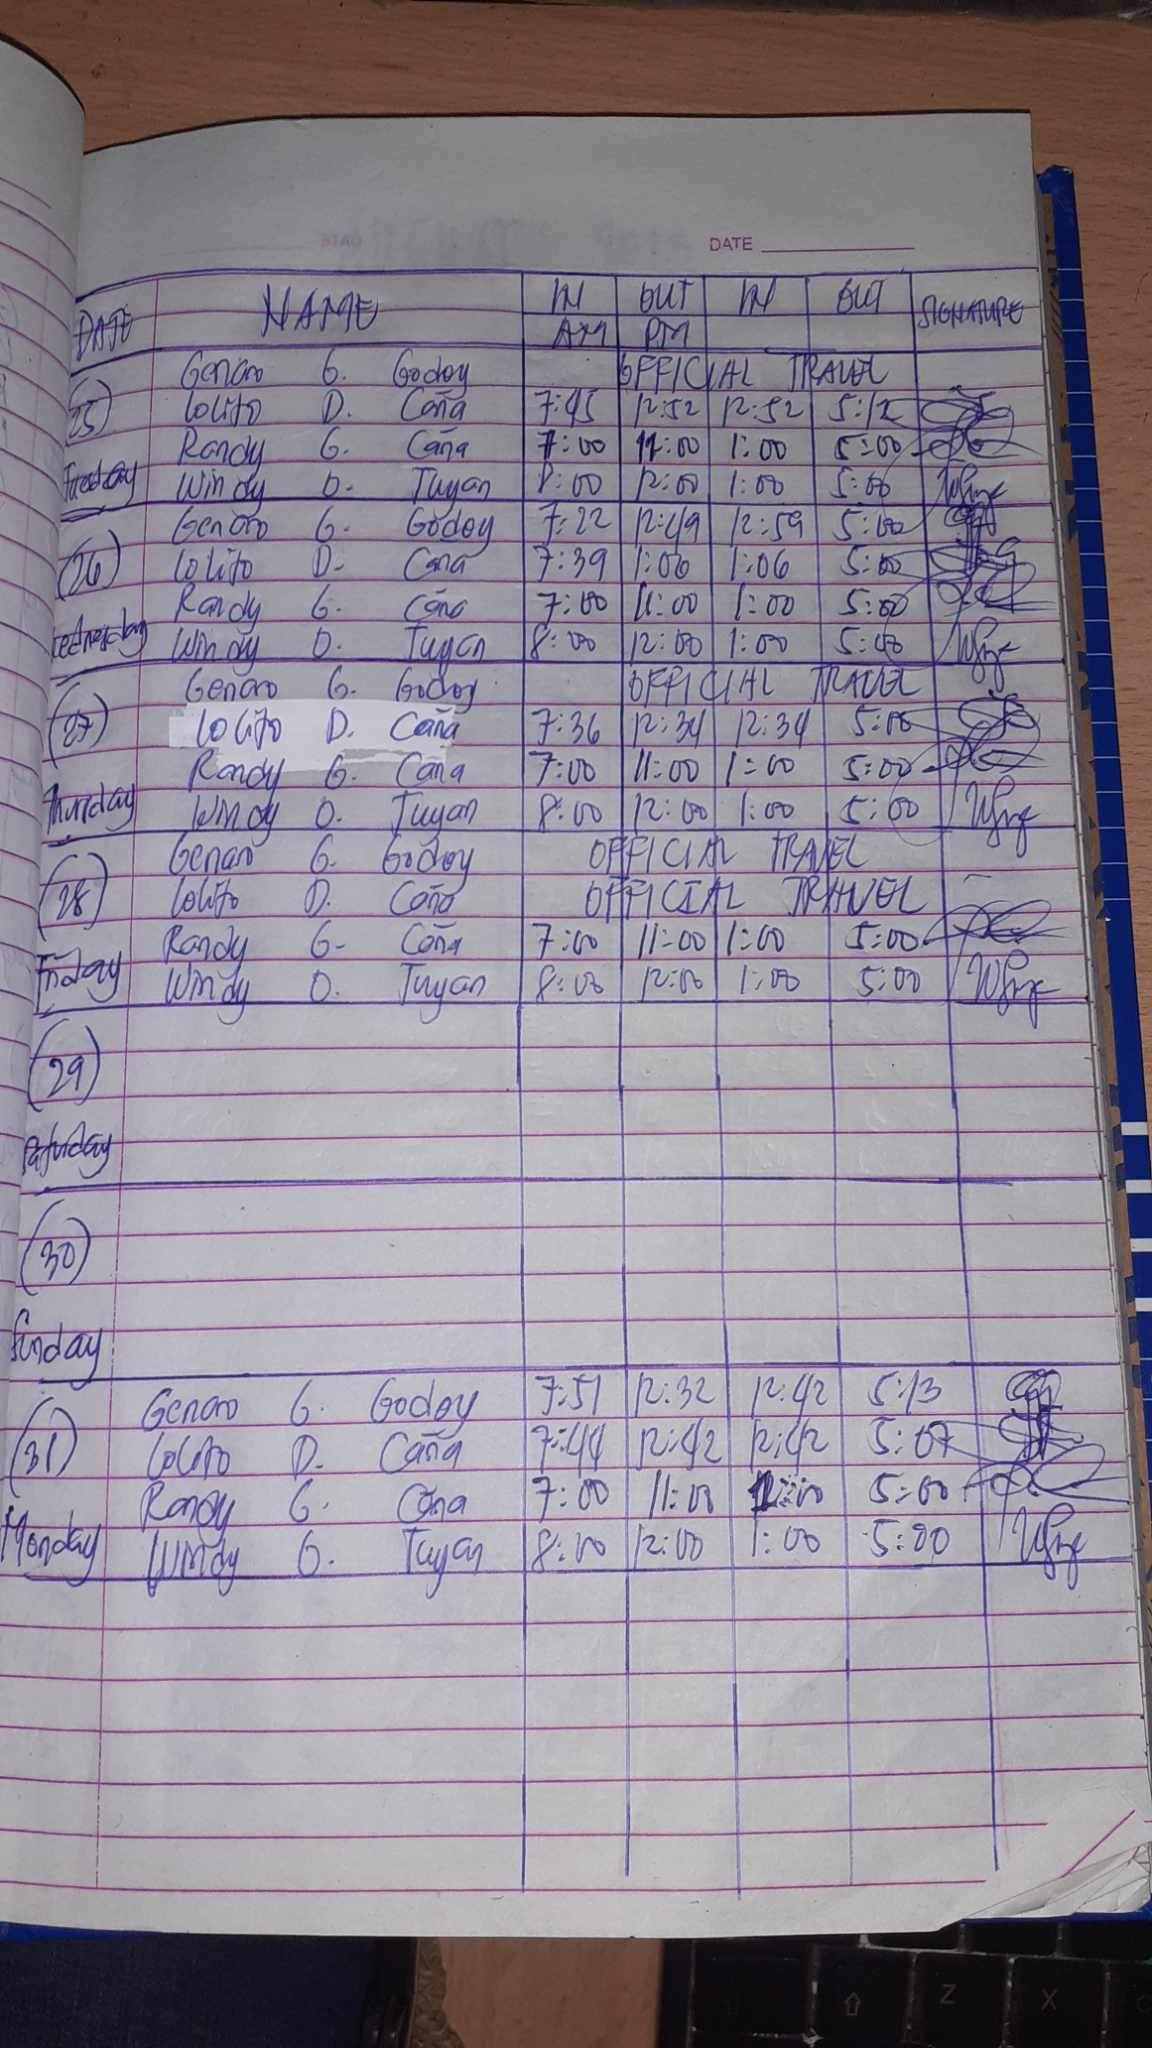 DATE
DATE NAME IN OUT IN OUT SIGNATURE
AM PM
Genaro G. Godoy OFFICIAL TRAVEL
(25) Lolito D. Caña 7:45 12:52 12:52 5:12
Randy G. Caña 7:00 11:00 1:00 5:00
Tuesday Windy O. Tuyan 8:00 12:00 1:00 5:00
Genaro G. Godoy 7:22 12:49 12:59 5:00
(26) Lolito D. Caña 7:39 1:06 1:06 5:00
Randy G. Caña 7:00 11:00 1:00 5:00
Wednesday Windy O. Tuyan 8:00 12:00 1:00 5:00
Genaro G. Godoy OFFICIAL TRAVEL
(27) Lolito D. Caña 7:36 12:34 12:34 5:00
Randy G. Caña 7:00 11:00 1:00 5:00
Thursday Windy O. Tuyan 8:00 12:00 1:00 5:00
Genaro G. Godoy OFFICIAL TRAVEL
(28) Lolito D. Caña OFFICIAL TRAVEL
Randy G. Caña 7:00 11:00 1:00 5:00
Friday Windy O. Tuyan 8:00 12:00 1:00 5:00
(29)
Saturday
(30)
Sunday
Genaro G. Godoy 7:51 12:32 12:42 5:13
(31) Lolito D. Caña 7:44 12:42 12:42 5:07
Randy G. Caña 7:00 11:00 5:00
Monday Windy G. Tuyan 8:00 12:00 1:00 5:00
Z X